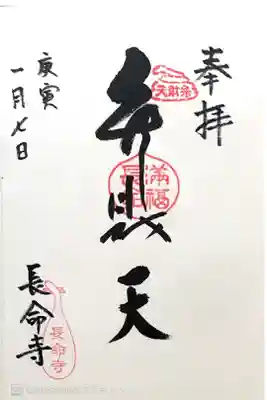 奉拝
弁財天
天財祭
満福
長寿
長命寺
庚寅
一月七日
長命寺